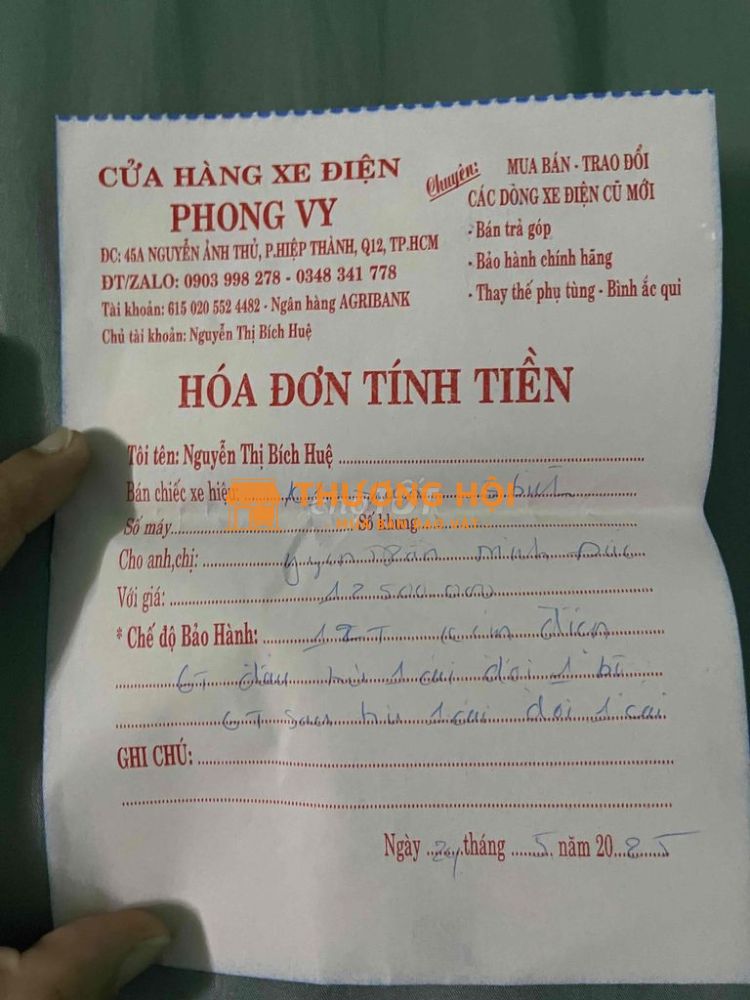 CỬA HÀNG XE ĐIỆN
PHONG VY
ĐC: 45A NGUYỄN ẢNH THỦ, P.HIỆP THÀNH, Q12, TP.HCM
ĐT/ZALO: 0903 998 278 - 0348 341 778
Tài khoản: 615 020 552 4482 - Ngân hàng AGRIBANK
Chủ tài khoản: Nguyễn Thị Bích Huệ
Chuyên:
MUA BÁN - TRAO ĐỔI
CÁC DÒNG XE ĐIỆN CŨ MỚI
- Bán trả góp
- Bảo hành chính hãng
- Thay thế phụ tùng - Bình ắc qui
HÓA ĐƠN TÍNH TIỀN
Tôi tên: Nguyễn Thị Bích Huệ
Bán chiếc xe hiệu
THƯƠNG HỘI
Số máy Số khung
Cho anh,chị: minh
Với giá: 12500000
* Chế độ Bảo Hành: 12T điện
6T đầu hư 1 cái đổi 1
6T sau hư 1 cái đổi 1 cái
GHI CHÚ:
Ngày 24 tháng 5 năm 2025